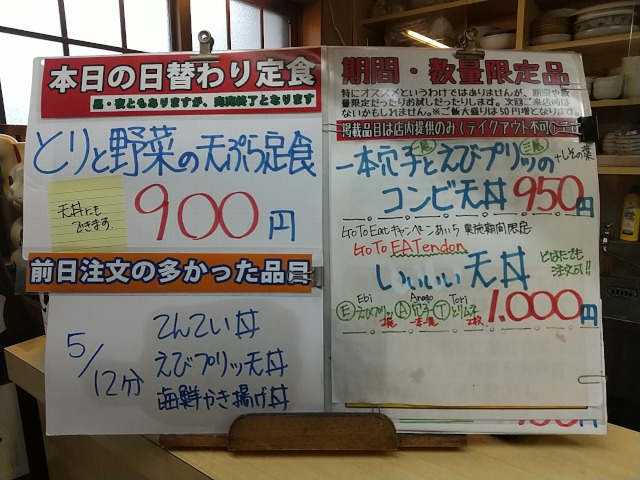 本日の日替わり定食
昼・夜ともありますが、完売終了となります
とりと野菜の天ぷら定食
天丼にも
できます。
900円
前日注文の多かった品目
5/12分
てんてい丼
えびプリッ天丼
海鮮かき揚げ丼
期間・数量限定品
特にオススメというわけではありませんが、期間や数
量限定だったりお試しだったりします。次回ご来店時は
ないかもしれません。※ご飯大盛りは50円増となります。
掲載品目は店内提供のみ(テイクアウト不可)
一本穴子とえびプリッの
+しその葉
コンビ天丼950円
Go To Eatキャンペーンあいち 実施期間限定
Go To EATendon
いいいい天丼
どなたでも
注文可!!
Ebi Anago Tori
Eえびプリッ A穴子 Tとりムネ
2尾 一本 2枚
1.000円